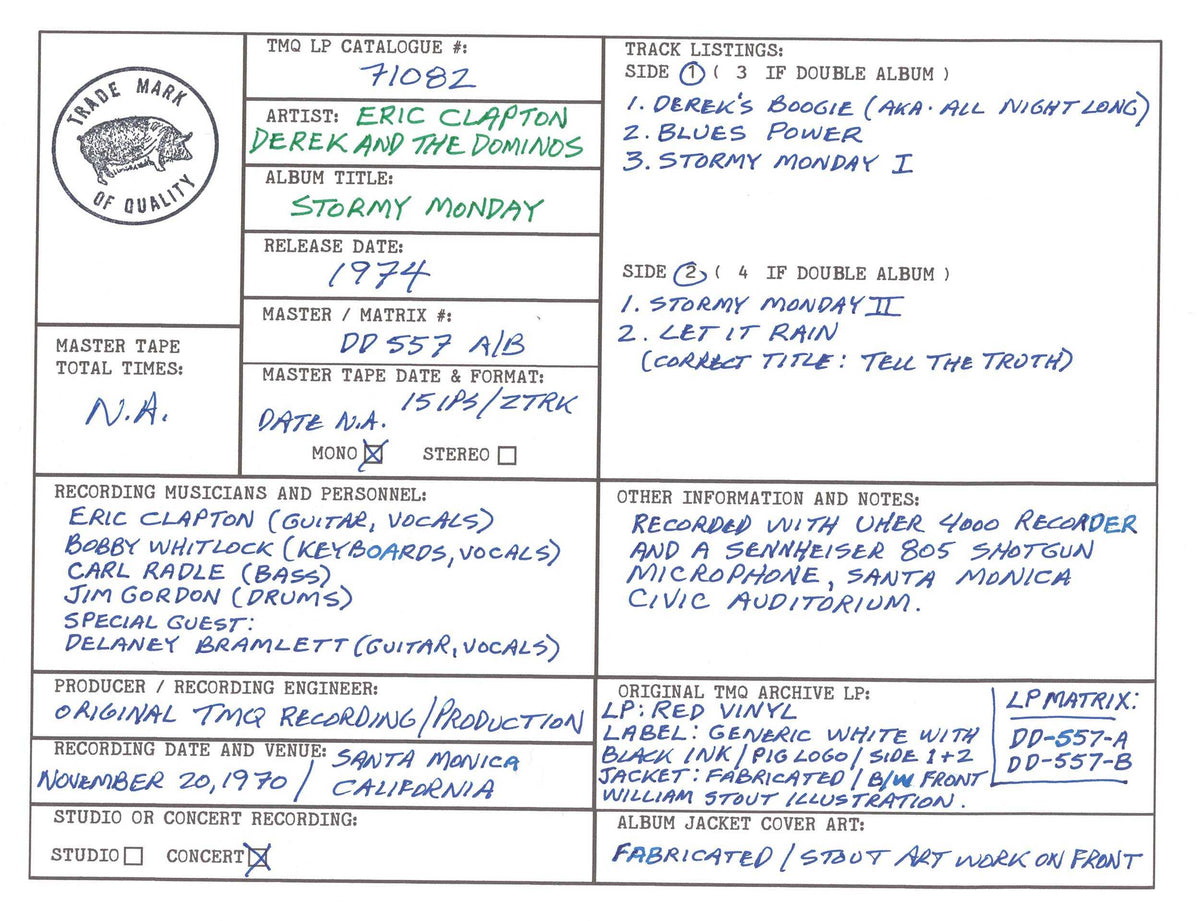 TRADE MARK
OF QUALITY
MASTER TAPE
TOTAL TIMES:
N.A.
TMQ LP CATALOGUE #:
71082
ARTIST: ERIC CLAPTON
DEREK AND THE DOMINOS
ALBUM TITLE:
STORMY MONDAY
RELEASE DATE:
1974
MASTER / MATRIX #:
DD 557 A/B
MASTER TAPE DATE & FORMAT:
15 IPS/2TRK
DATE N.A.
MONO STEREO
TRACK LISTINGS:
SIDE 1 ( 3 IF DOUBLE ALBUM )
1. DEREK'S BOOGIE (AKA. ALL NIGHT LONG)
2. BLUES POWER
3. STORMY MONDAY I
SIDE 2 ( 4 IF DOUBLE ALBUM )
1. STORMY MONDAY II
2. LET IT RAIN
(CORRECT TITLE: TELL THE TRUTH)
RECORDING MUSICIANS AND PERSONNEL:
ERIC CLAPTON (GUITAR, VOCALS)
BOBBY WHITLOCK (KEYBOARDS, VOCALS)
CARL RADLE (BASS)
JIM GORDON (DRUMS)
SPECIAL GUEST:
DELANEY BRAMLETT (GUITAR, VOCALS)
OTHER INFORMATION AND NOTES:
RECORDED WITH UHER 4000 RECORDER
AND A SENNHEISER 805 SHOTGUN
MICROPHONE, SANTA MONICA
CIVIC AUDITORIUM.
PRODUCER / RECORDING ENGINEER:
ORIGINAL TMQ RECORDING/PRODUCTION
RECORDING DATE AND VENUE: SANTA MONICA
NOVEMBER 20, 1970 / CALIFORNIA
STUDIO OR CONCERT RECORDING:
STUDIO CONCERT
ORIGINAL TMQ ARCHIVE LP:
LP: RED VINYL
LABEL: GENERIC WHITE WITH
BLACK INK / PIG LOGO / SIDE 1+2
JACKET: FABRICATED / B/W FRONT
WILLIAM STOUT ILLUSTRATION.
LP MATRIX:
DD-557-A
DD-557-B
ALBUM JACKET COVER ART:
FABRICATED / STOUT ART WORK ON FRONT